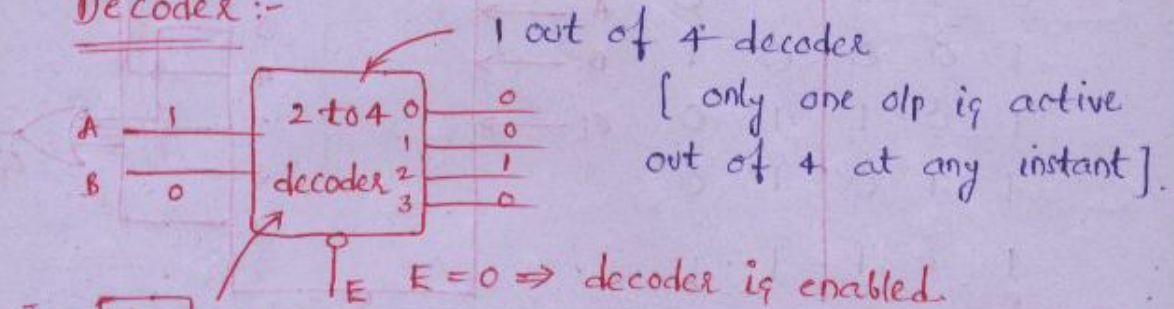 Decoder :-
1 out of 4 decoder
[ only one o/p is active
out of 4 at any instant ].
A 1 2 to 4 0 0
1 0
B 0 decoder 2 1
3 0
E E = 0 ⇒ decoder is enabled.